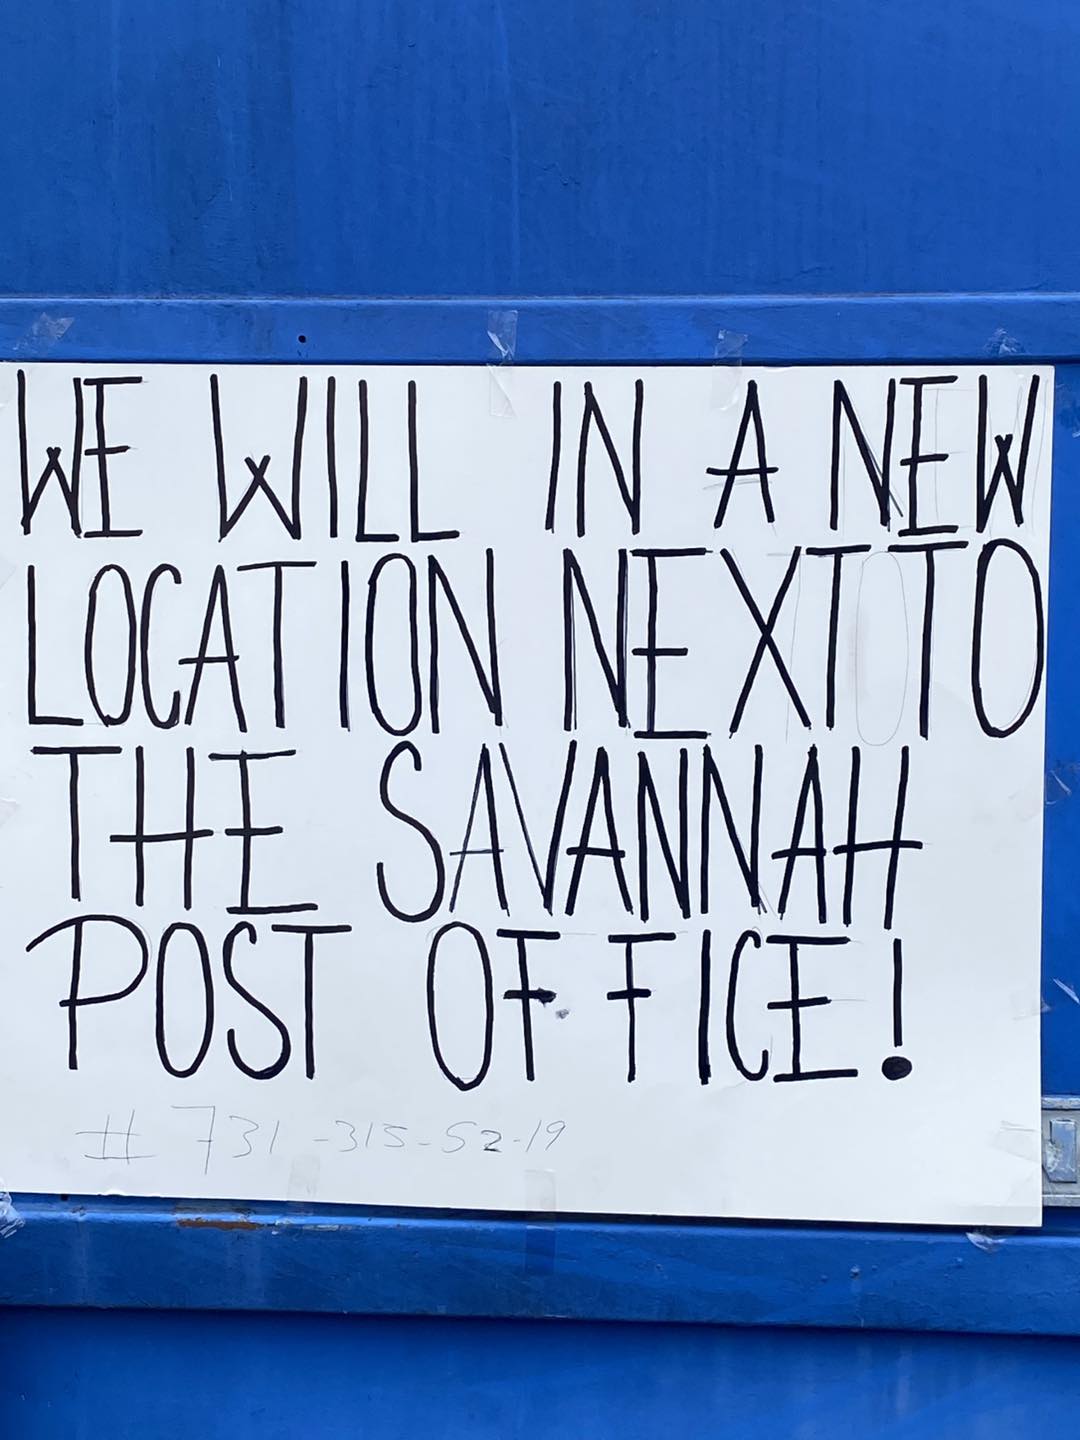 WE WILL IN A NEW
LOCATION NEXT TO
THE SAVANNAH
POST OFFICE!
# 731-315-52-19